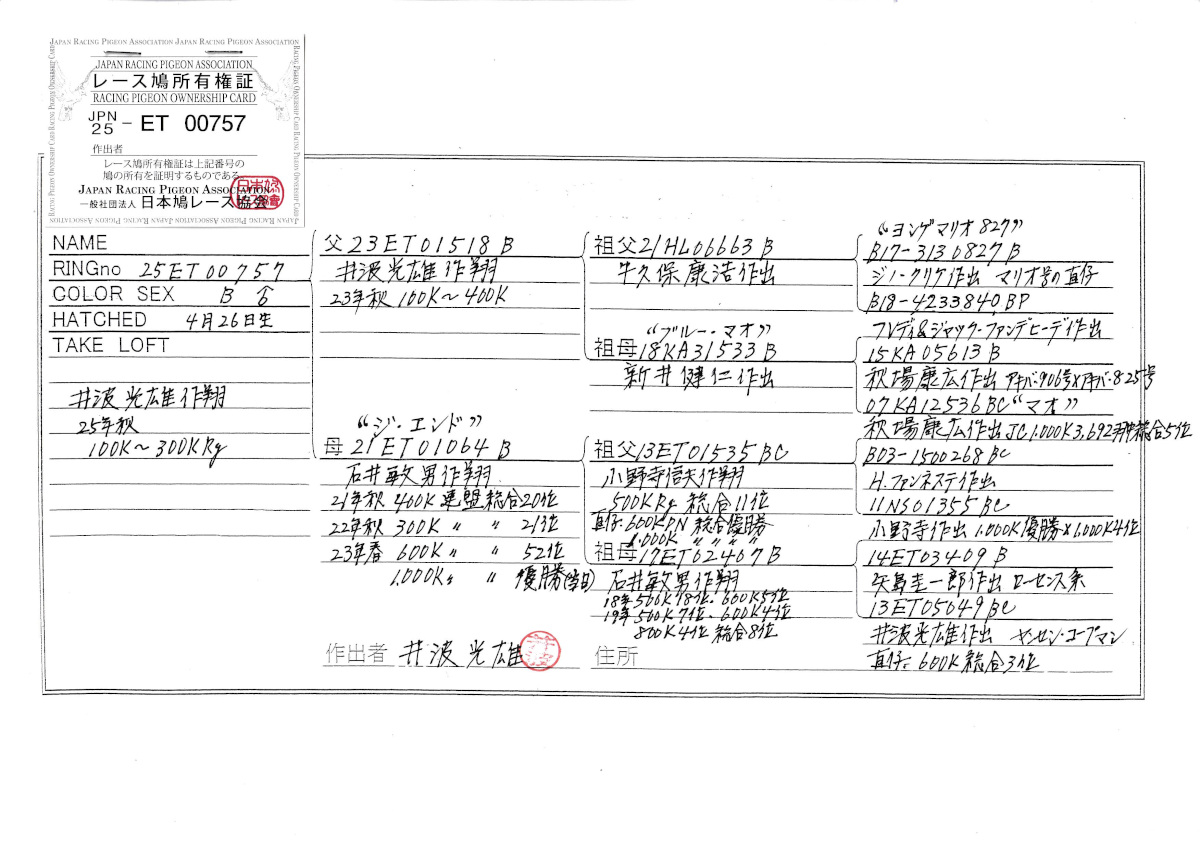 JAPAN RACING PIGEON ASSOCIATION JAPAN RACING PIGEON ASSOCIATION
JAPAN RACING PIGEON ASSOCIATION
レース鳩所有権証
RACING PIGEON OWNERSHIP CARD
JPN
25 - ET 00757
作出者
レース鳩所有権証は上記番号の
鳩の所有を証明するものである。
JAPAN RACING PIGEON ASSOCIATION
一般社団法人 日本鳩レース協会
NAME
RINGno 25ET00757
COLOR SEX B ♂
HATCHED 4月26日生
TAKE LOFT
井波光雄作翔
25年秋
100K~300KRg
父23ET01518 B
井波光雄作翔
23年秋 100K~400K
“ジ・エンド”
母21ET01064 B
石井敏男作翔
21年秋 400K 連盟総合20位
22年秋 300K 〃 〃 21位
23年春 600K 〃 〃 52位
1,000K 〃 〃 優勝(当日)
作出者 井波光雄
祖父21HL06663 B
牛久保康浩作出
“ブルー・マオ”
祖母18KA31533 B
新井健仁作出
祖父13ET01535 BC
小野寺信夫作翔
500KRg 総合11位
直仔:600KPN 総合優勝
1,000K 〃 〃 〃
祖母17ET02407 B
石井敏男作翔
18年500K18位、600K5位
19年500K7位、600K4位
800K4位 総合8位
住所
“ヨングマリオ827”
B17-3130827 B
ジノ・クリケ作出 マリオ号の直仔
B18-4233840 BP
フレディ&ジャック・ファンデヒーデ作出
15KA05613 B
秋場康広作出 アキバ・906号×アキバ・825号
07KA12536 BC “マオ”
秋場康広作出JC1,000K3,692羽中総合5位
B03-1500268 BC
H.ファンネステ作出
11NS01355 BC
小野寺作出 1,000K優勝×1,000K4位
14ET03409 B
矢島圭一郎作出 ローセンス系
13ET05049 BC
井波光雄作出 ヤンセン・コープマン
直仔:600K総合3位